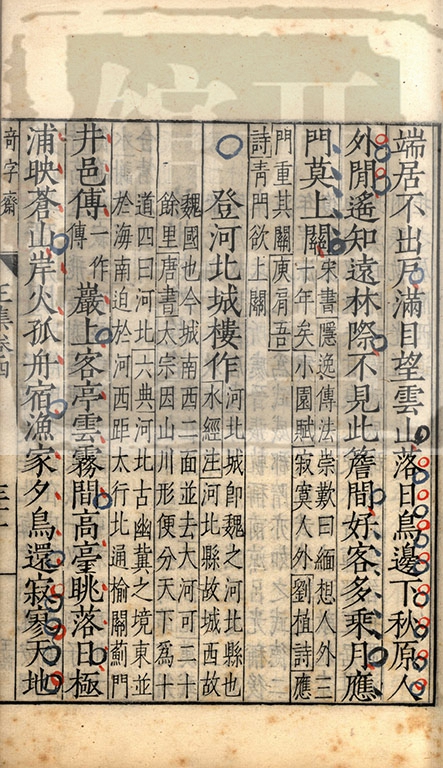 端居不出戶滿目望雲山落日鳥邊下秋原人
外閒遙知遠林際不見此簷間好客多乘月應
門莫上關
宋書隱逸傳法崇歎曰緬想人外三
十年矣小園賦寂寞人外劉植詩應
門重其關庾肩吾
詩靑門欲上關
登河北城樓作
河北城卽魏之河北縣也
水經注河北縣故城西故
魏國也今城南西二面並去大河可二十
餘里唐書太宗因山川形便分天下爲十
道四曰河北六典河北古幽冀之境東並
於海南迫於河西距太行北通榆關薊門
井邑傅一作傳巖上客亭雲霧間高臺眺落日極
浦映蒼山岸火孤舟宿漁家夕鳥還寂寥天地
奇字齋